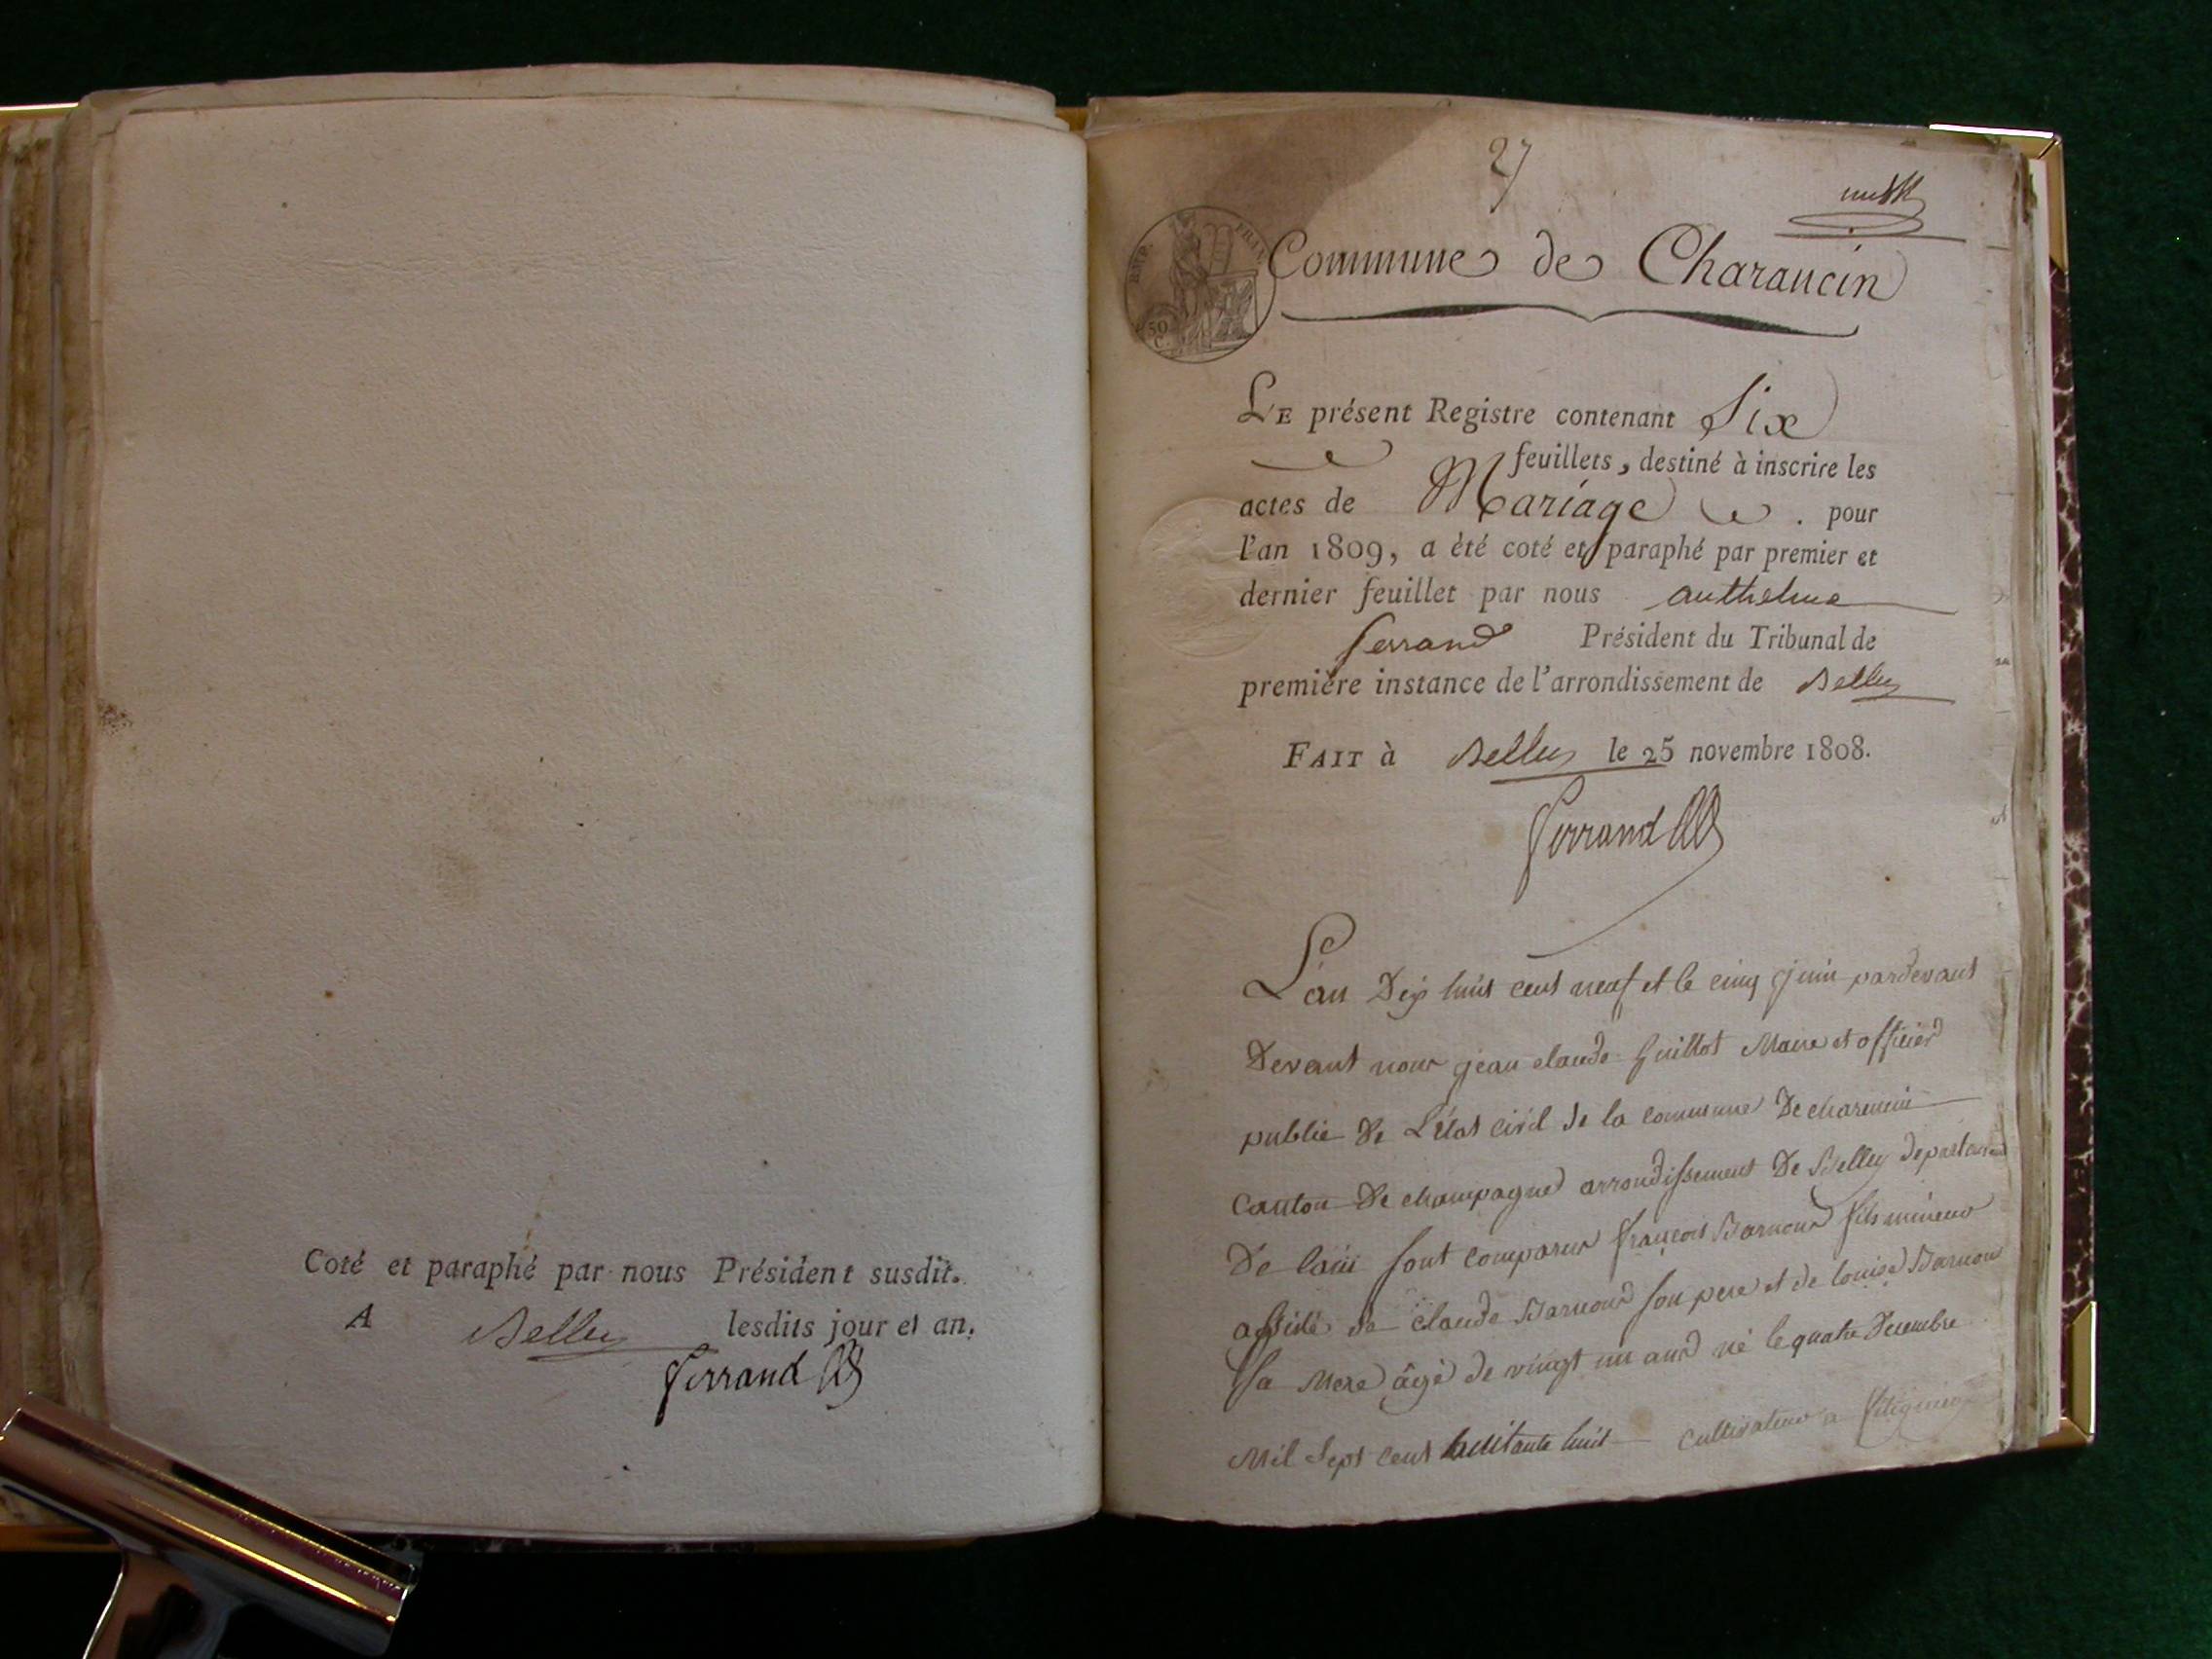 Coté et paraphé par nous Président susdit.
A Belley lesdits jour et an.
Ferrand
27
EMP. FRAN.
50
C.
Commune de Charancin
LE présent Registre contenant Six
feuillets, destiné à inscrire les
actes de Mariage pour
l'an 1809, a èté coté et paraphé par premier et
dernier feuillet par nous anthelme
ferrand Président du Tribunal de
première instance de l'arrondissement de Belley
FAIT à Belley le 25 novembre 1808.
Ferrand
L'an Dix huit cent neuf et le cinq juin pardevant
Devant nous jean claude Guillot Maire et officier
public De L'état civil de la commune De charencin
Canton De champagne arrondissement De Belley departement
De lain sont comparus françois Barnoud fils mineur
assisté de claude Barnoud son pere et de louise Barnoud
sa Mere âgé de vingt un ans né le quatre Decembre
Mil Sept cent huitante huit cultivateur a